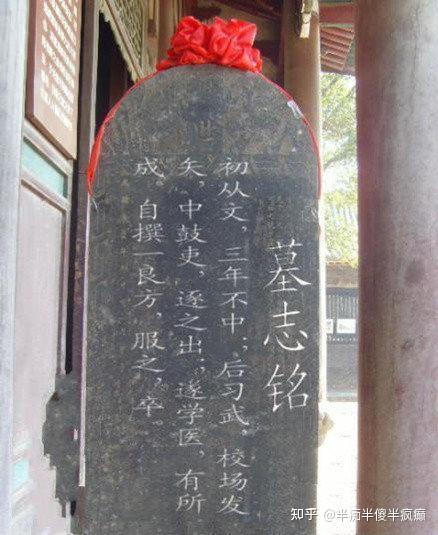 墓志铭
初从文，三年不中；后习武，校场发
矢，中鼓吏，逐之出；遂学医，有所
成。自撰一良方，服之，卒。
知乎 @半疯半傻半疯癫